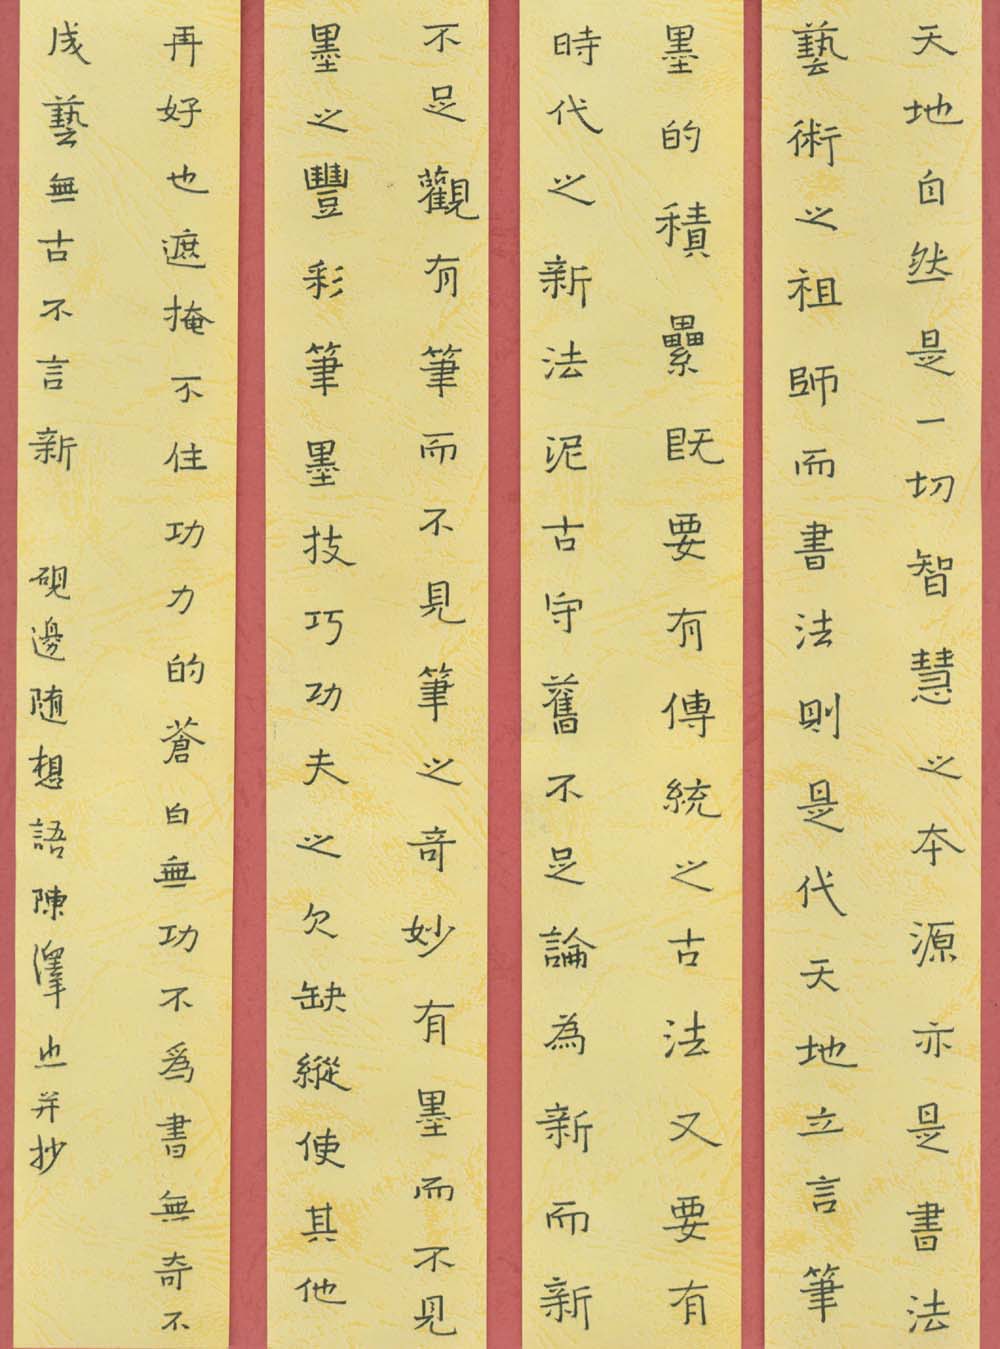 天地自然是一切智慧之本源亦是書法
藝術之祖師而書法則是代天地立言筆
墨的積纍既要有傳統之古法又要有
時代之新法泥古守舊不足論為新而新
不足觀有筆而不見筆之奇妙有墨而不見
墨之豐彩筆墨技巧功夫之欠缺縱使其他
再好也遮掩不住功力的蒼白無功不為書無奇不
成藝無古不言新
硯邊随想語陳澤也并抄